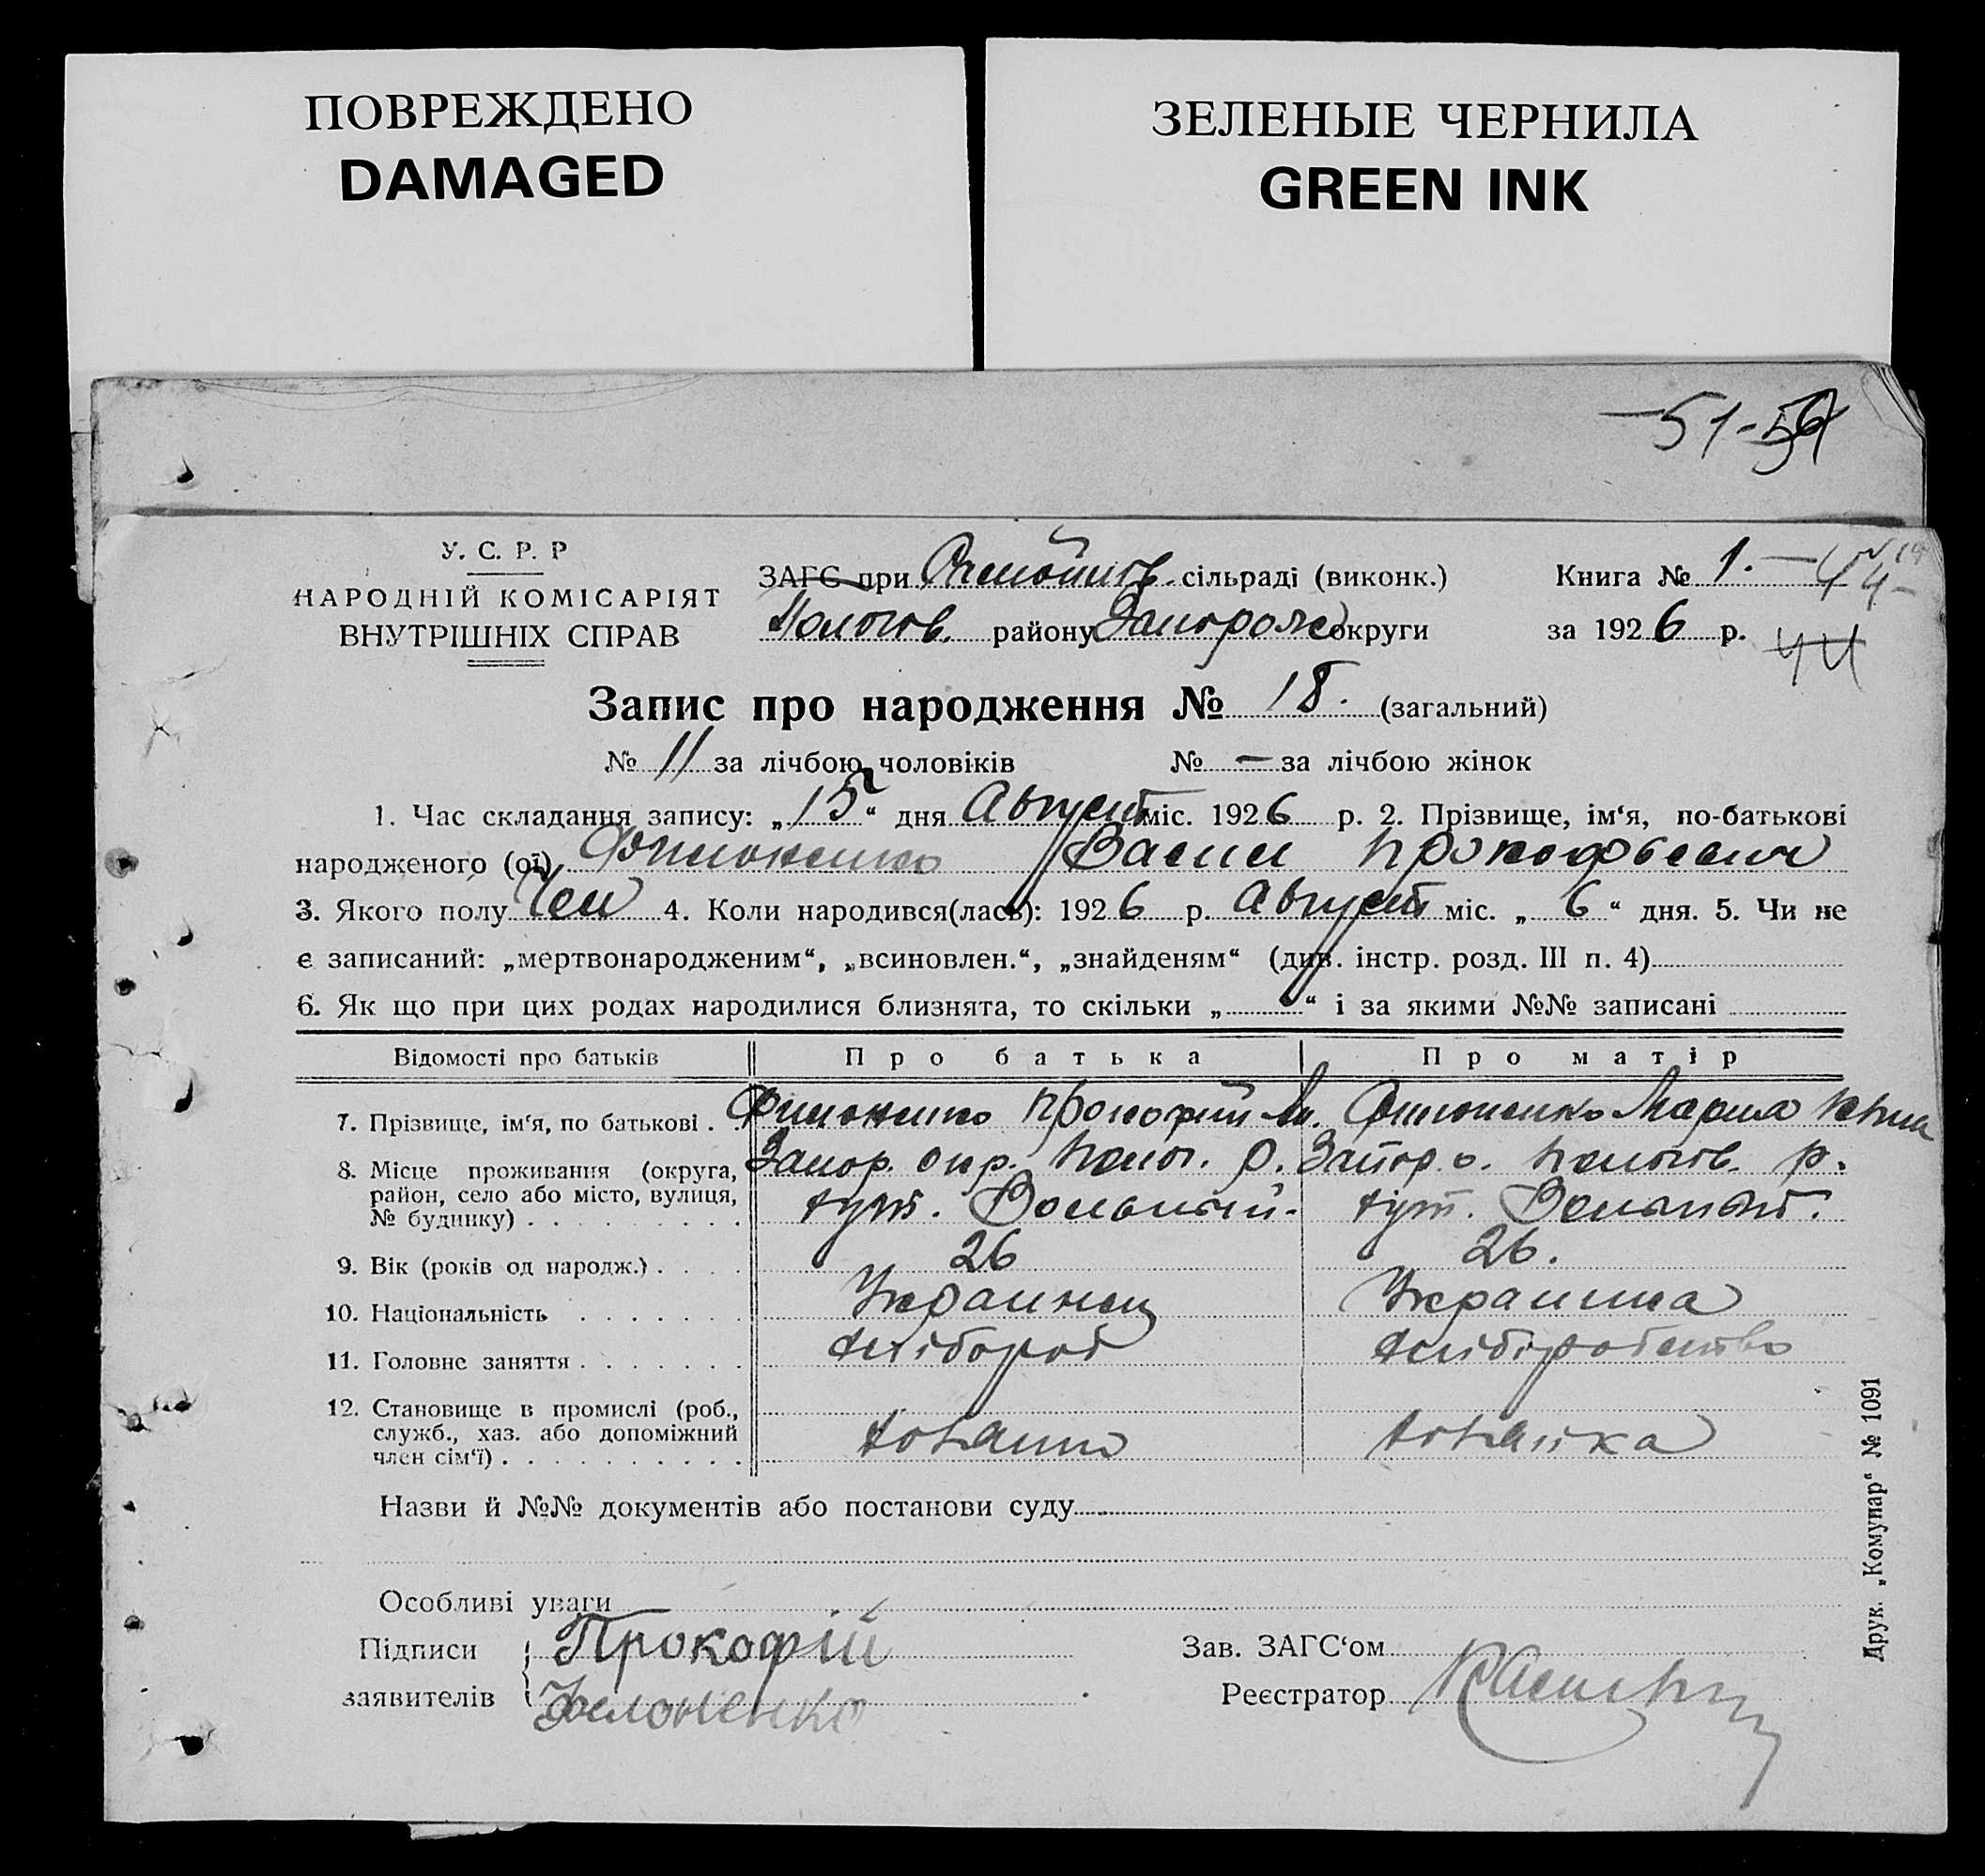 ПОВРЕЖДЕНО
DAMAGED
ЗЕЛЕНЫЕ ЧЕРНИЛА
GREEN INK
51-
У. С. Р. Р
НАРОДНІЙ КОМІСАРІЯТ
ВНУТРІШНІХ СПРАВ
ЗАГС при сільраді (виконк.)
Пологов. району Запорож округи
Книга № 1.
за 1926 р.
44
Запис про народження № 18. (загальний)
№ 11 за лічбою чоловіків № — за лічбою жінок
1. Час складання запису: „15“ дня Август міс. 1926 р. 2. Прізвище, ім‘я, по-батькові
народженого (ої) Филоненко Васил Прокофьевич
3. Якого полу Чол 4. Коли народився(лась): 1926 р. Август міс. „6“ дня. 5. Чи не
є записаний: „мертвонародженим“, „всиновлен.“, „знайденям“ (див. інстр. розд. III п. 4)
6. Як що при цих родах народилися близнята, то скільки „ “ і за якими №№ записані
Відомості про батьків Про батька Про матір
7. Прізвище, ім‘я, по батькові . Филоненко Прокофий М. Филоненко Мария
8. Місце проживання (округа, Запор. окр. Полог. р. Запор о. Пологов. р.
район, село або місто, вулиця, хут. Вольный. хут. Вольный.
№ будинку)
9. Вік (років од народж.) 26 26.
10. Національність Украинец Украинка
11. Головне заняття хлібороб хліборобство
12. Становище в промислі (роб.,
служб., хаз. або допоміжний хозяин хозяйка
член сім‘ї)
Назви й №№ документів або постанови суду
Особливі уваги
Підписи Прокофій
заявителів Филоненко
Зав. ЗАГС‘ом
Реєстратор
Друк. „Комунар“ № 1091